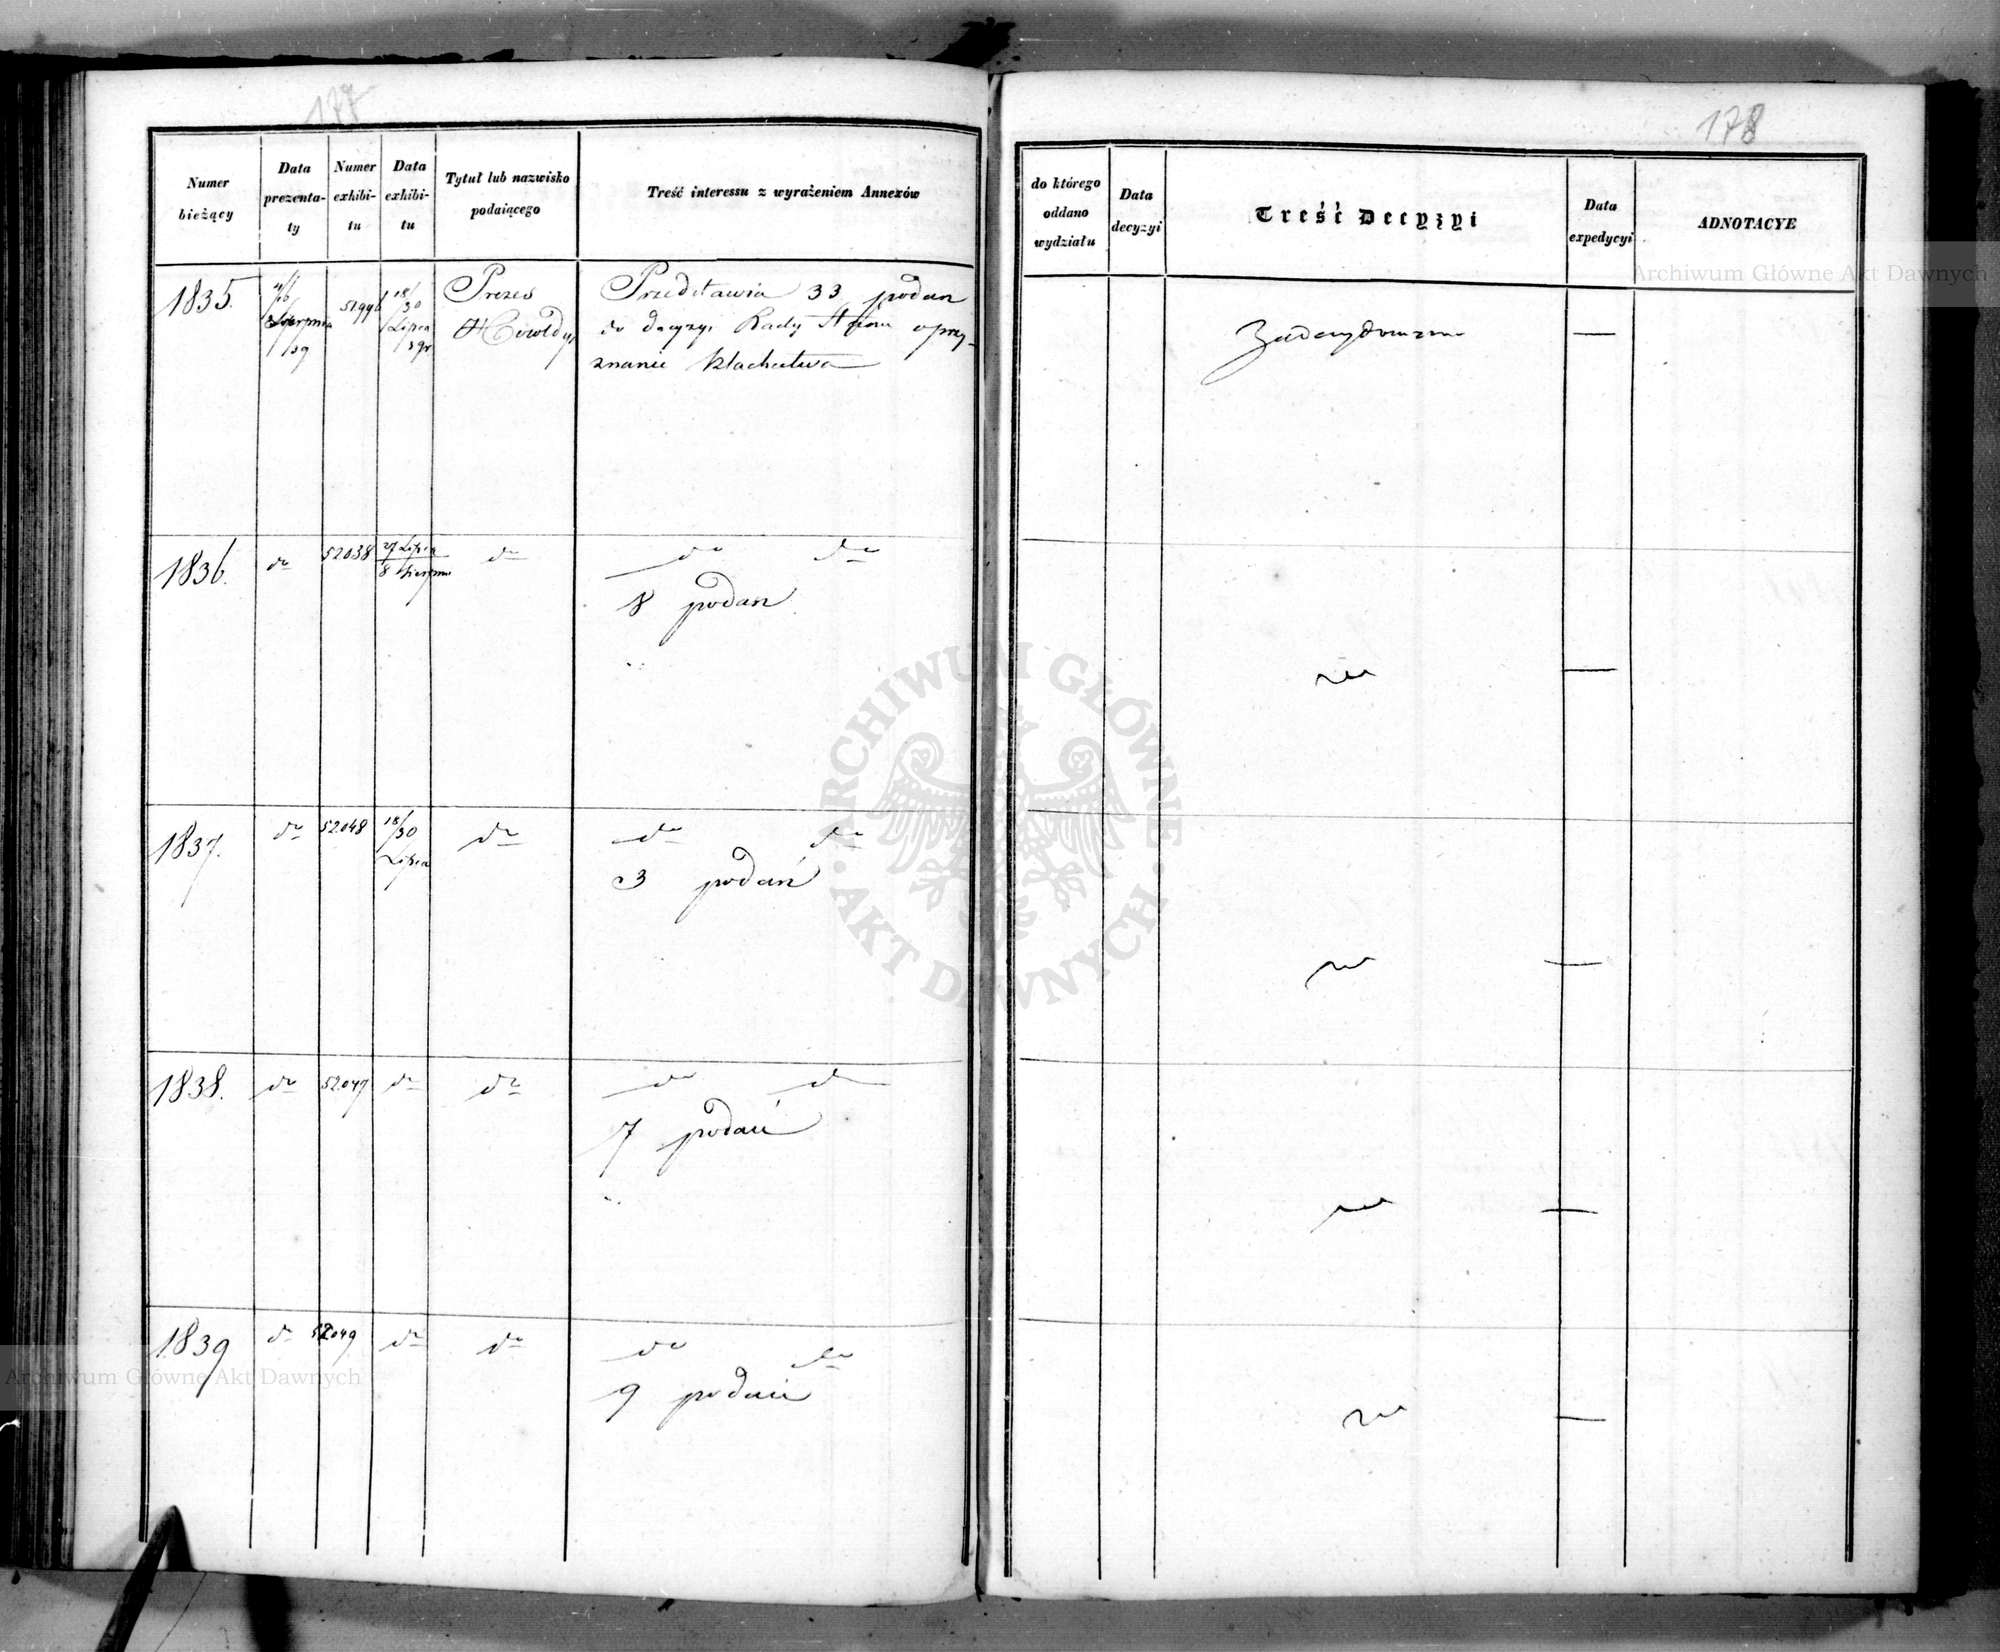 177
Numer bieżący
Data prezenta-ty
Numer exhibi-tu
Data exhibi-tu
Tytuł lub nazwisko podaiącego
Treść interessu z wyrażeniem Annexów
1835.
4/16 Sierpnia /39
18/30 Lipca
Prezes
Heroldyi
Przedstawia 33 podan
do decyzyi Rady Stanu o przy-
znanie Szlachectwa
1836.
do
52038
27 Lipca
8 Sierpnia
do
do do
8 podan
1837.
do
52048
18/30 Lipca
do
do do
3 podań
1838.
do
52047
do
do
do do
7 podań
1839
do
52049
do
do
do do
9 podań
178
do którego oddano wydziału
Data decyzyi
Treść Decyzyi
Data expedycyi
ADNOTACYE
Zadecydowano
Archiwum Główne Akt Dawnych
ARCHIWUM GŁÓWNE
AKT DAWNYCH
Archiwum Główne Akt Dawnych